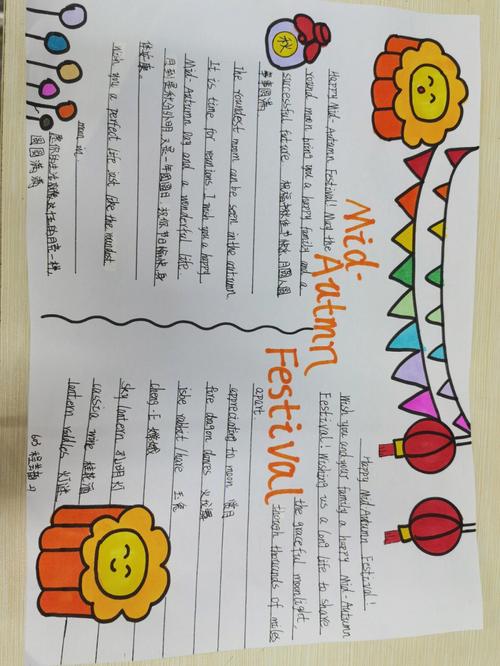 Mid-
Autmn
Festival
秋
Happy Mid-Autumn Festival! May the
round moon bring you a happy family and a
successful future. 祝福中秋佳节快乐, 月圆人圆
事事圆满
The roundest moon can be seen in the autumn
It is time for reunions. I wish you a happy
Mid-Autumn Day and a wonderful life
月到是秋分外明 又是一年团圆日 祝你节日愉快, 身
体安康。
wish you a perfect life just like the roundest
moon in
愿你的生活就像这佳的月亮一样,
圆圆满满
Happy Mid Autumn Festival!
Wish you and your family a happy Mid-Autumn
Festival! Wishing us a long life to share
the graceful moonlight,
though thousands of miles
apart
appreciated to moon 赏月
fire dragon dances 火龙舞
rabbit/hare 玉兔
cheng-E 嫦娥
sky lantern 孔明灯
cassia wine 桂花酒
lantern riddles 灯谜
603